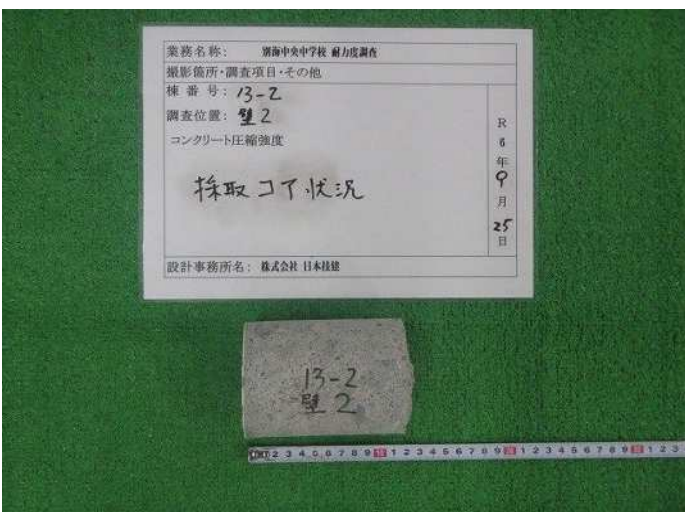 業務名称: 別海中央中学校 耐力度調査
撮影箇所・調査項目・その他
棟番号: 13-2
調査位置: 壁2
コンクリート圧縮強度
採取コア状況
R6年9月25日
設計事務所名: 株式会社 日本技建
13-2
壁2
2 3 4 5 6 7 8 9 10 1 2 3 4 5 6 7 8 9 20 1 2 3 4 5 6 7 8 9 30 1 2 3